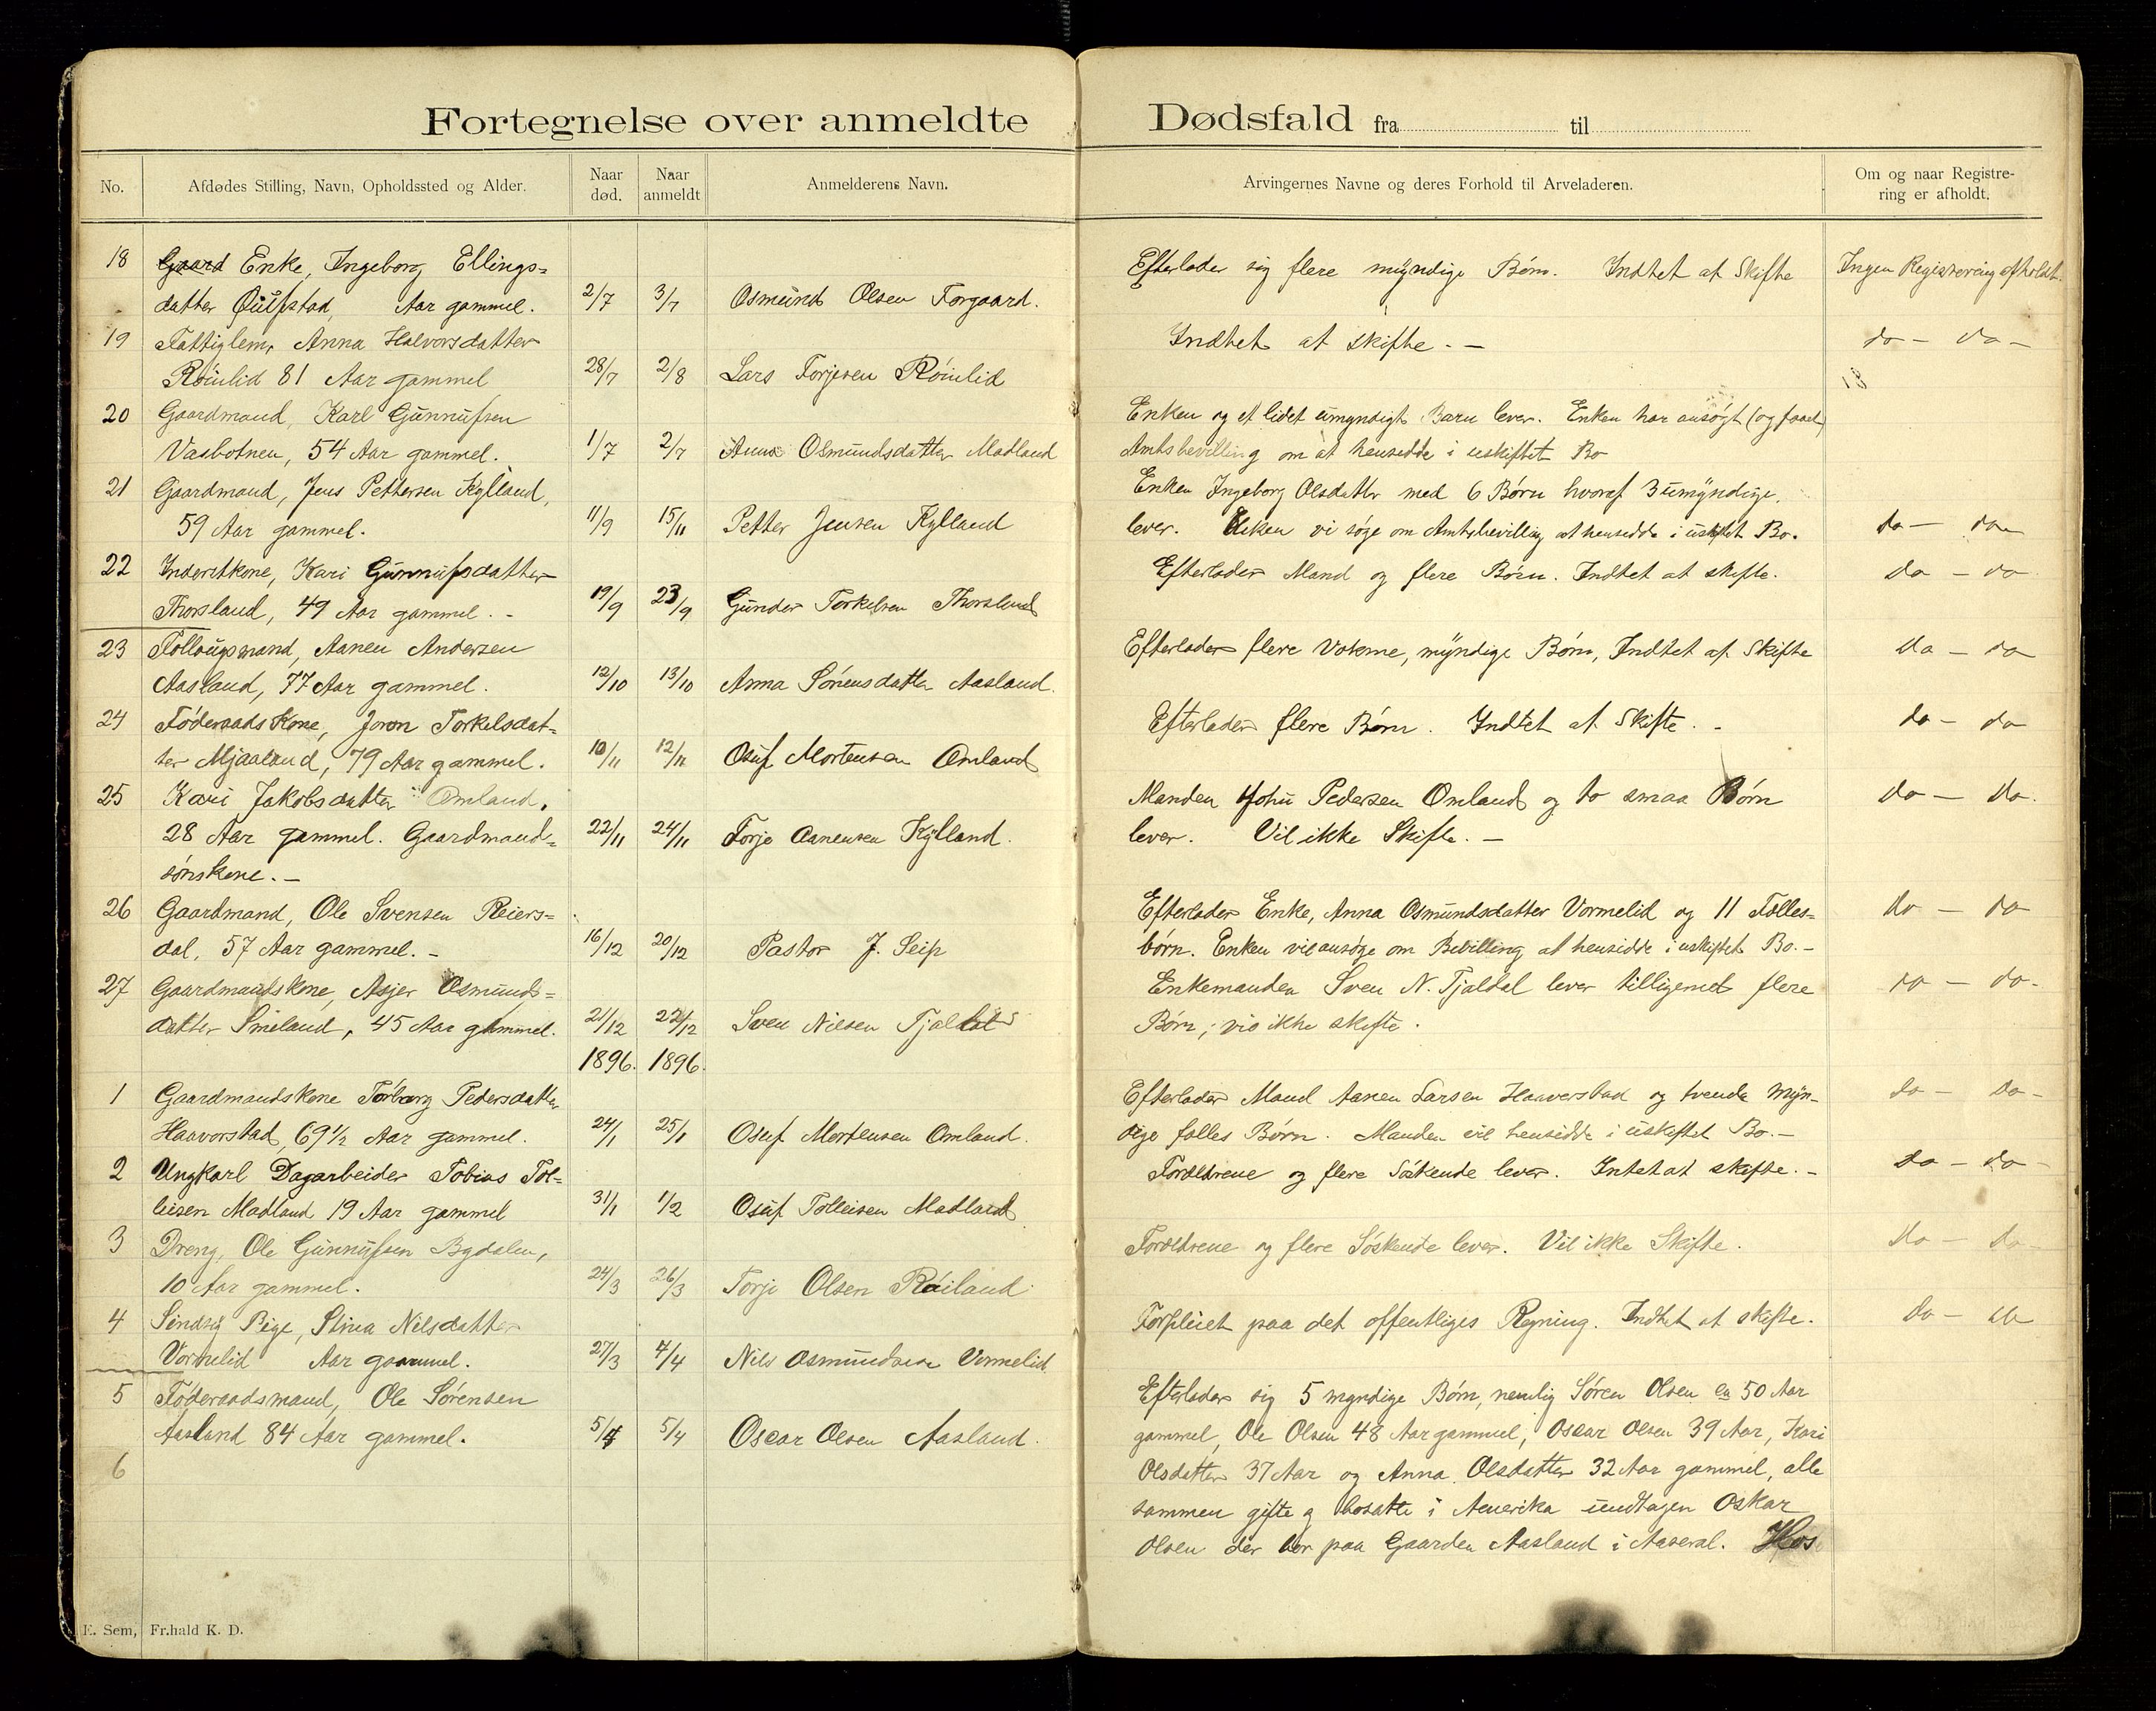 Fortegnelse over anmeldte Dødsfald fra til
No.
Afdødes Stilling, Navn, Opholdssted og Alder.
Naar død.
Naar anmeldt
Anmelderens Navn.
Arvingernes Navne og deres Forhold til Arveladeren.
Om og naar Registre-
ring er afholdt.
18 Gaard Enke, Ingeborg Ellings= Efterlader sig flere myndige Børn. Indtet at Skifte Ingen Registrering afholdt.
datter Aar gammel. 2/7 3/7 Osmund Olsen Torgaard.
19 Fattiglem, Anna Halvorsdatter Indtet at skifte. - do - do -
Röinlid 81 Aar gammel 28/7 2/8 Lars Torjesen Röinlid
20 Gaardmand, Karl Gunnufsen Enken og et lidet umyndigt Barn lever. Enken har ansøgt (og faaet)
Vasbotnen, 54 Aar gammel. 1/7 2/7 Anne Osmundsdatter Madland Amtsbevilling om at hensidde i uskiftet Bo
21 Gaardmand, Jens Pettersen Kylland, Enken Ingeborg Olsdatter med 6 Børn hvoraf 3 umyndige,
59 Aar gammel. 11/9 15/11 Petter Jensen Kylland lever. Enken vi søge om Amtsbevilling at hensidde i uskiftet Bo. do - do
22 Inderstkone, Kari Gunnufsdatter Efterlader Mand og flere Børn. Indtet at skifte. do - do
Thorsland, 49 Aar gammel. - 19/9 23/9 Gunder Torkelsen Thorsland
23 Tollougsmand, Aanen Andersen Efterlader flere Voksne, myndige Børn, Indtet at Skifte do - do
Aasland, 77 Aar gammel. 12/10 13/10 Anna Sörensdatter Aasland.
24 Föderaads Kone, Joron Torkelsdat= Efterlader flere Børn. Indtet at Skifte. - do - do
ter Mjaaland, 79 Aar gammel. 10/11 12/11 Osuf Mortensen Omland
25 Kari Jakobsdatter Omland, Manden John Pedersen Omland og to smaa Børn do - do.
28 Aar gammel. Gaardmand= 22/11 24/11 Torje Aanensen Kylland. lever. Vil ikke Skifte. -
sönskone. -
26 Gaardmand, Ole Svensen Reiers= Efterlader Enke, Anna Osmundsdatter Vormelid og 11 Fælles= do - do
dal, 57 Aar gammel. - 16/12 20/12 Pastor J. Seip børn. Enken vil ansøge om Bevilling at hensidde i uskiftet Bo. -
27 Gaardmandskone, Asjer Osmunds= Enkemanden Sven N. Tjaldal lever tilligemed flere do - do -
datter Smeland, 45 Aar gammel. 21/12 22/12 Sven Nilsen Tjaldal Børn; vio ikke skifte.
1896. 1896.
1 Gaardmandskone Torborg Pedersdatter Efterlader Mand Aanen Larsen Haaverstad og tvende Myn- do - do -
Haavorstad, 69 1/2 Aar gammel. 24/1 25/1 Osuf Mortensen Omland. dige fælles Børn. Manden vil hensidde i uskiftet Bo. -
2 Ungkarl Dagarbeider Tobias Tol= Forældrene og flere Söskende lever. Intet at skifte. - do - do -
leisen Madland 19 Aar gammel 31/1 1/2 Osuf Tolleisen Madland
3 Dreng, Ole Gunnufsen Bydalen, Forældrene og flere Söskende lever. Vil ikke Skifte. do - do
10 Aar gammel. 24/3 26/3 Torje Olsen Röiland
4 Sindsyg Pige, Stina Nilsdatter Forpleiet paa det offentliges Regning. Indtet at skifte. do - do
Vormelid Aar gammel. 27/3 4/4 Nils Osmundsen Vormelid
5 Föderaadsmand, Ole Sörensen Efterlader sig 5 myndige Børn, nemlig Sören Olsen en 50 Aar
Aasland 84 Aar gammel. 5/4 5/4 Oscar Olsen Aasland. gammel, Ole Olsen 48 Aar gammel, Oscar Olsen 39 Aar, Kari
6 Olsdatter 37 Aar og Anna Olsdatter 32 Aar gammel, alle
sammen gifte og bosatte i Amerika undtagen Oskar
Olsen der bor paa Gaarden Aasland i Aaseral. Hos
E. Sem, Fr.hald K. D.